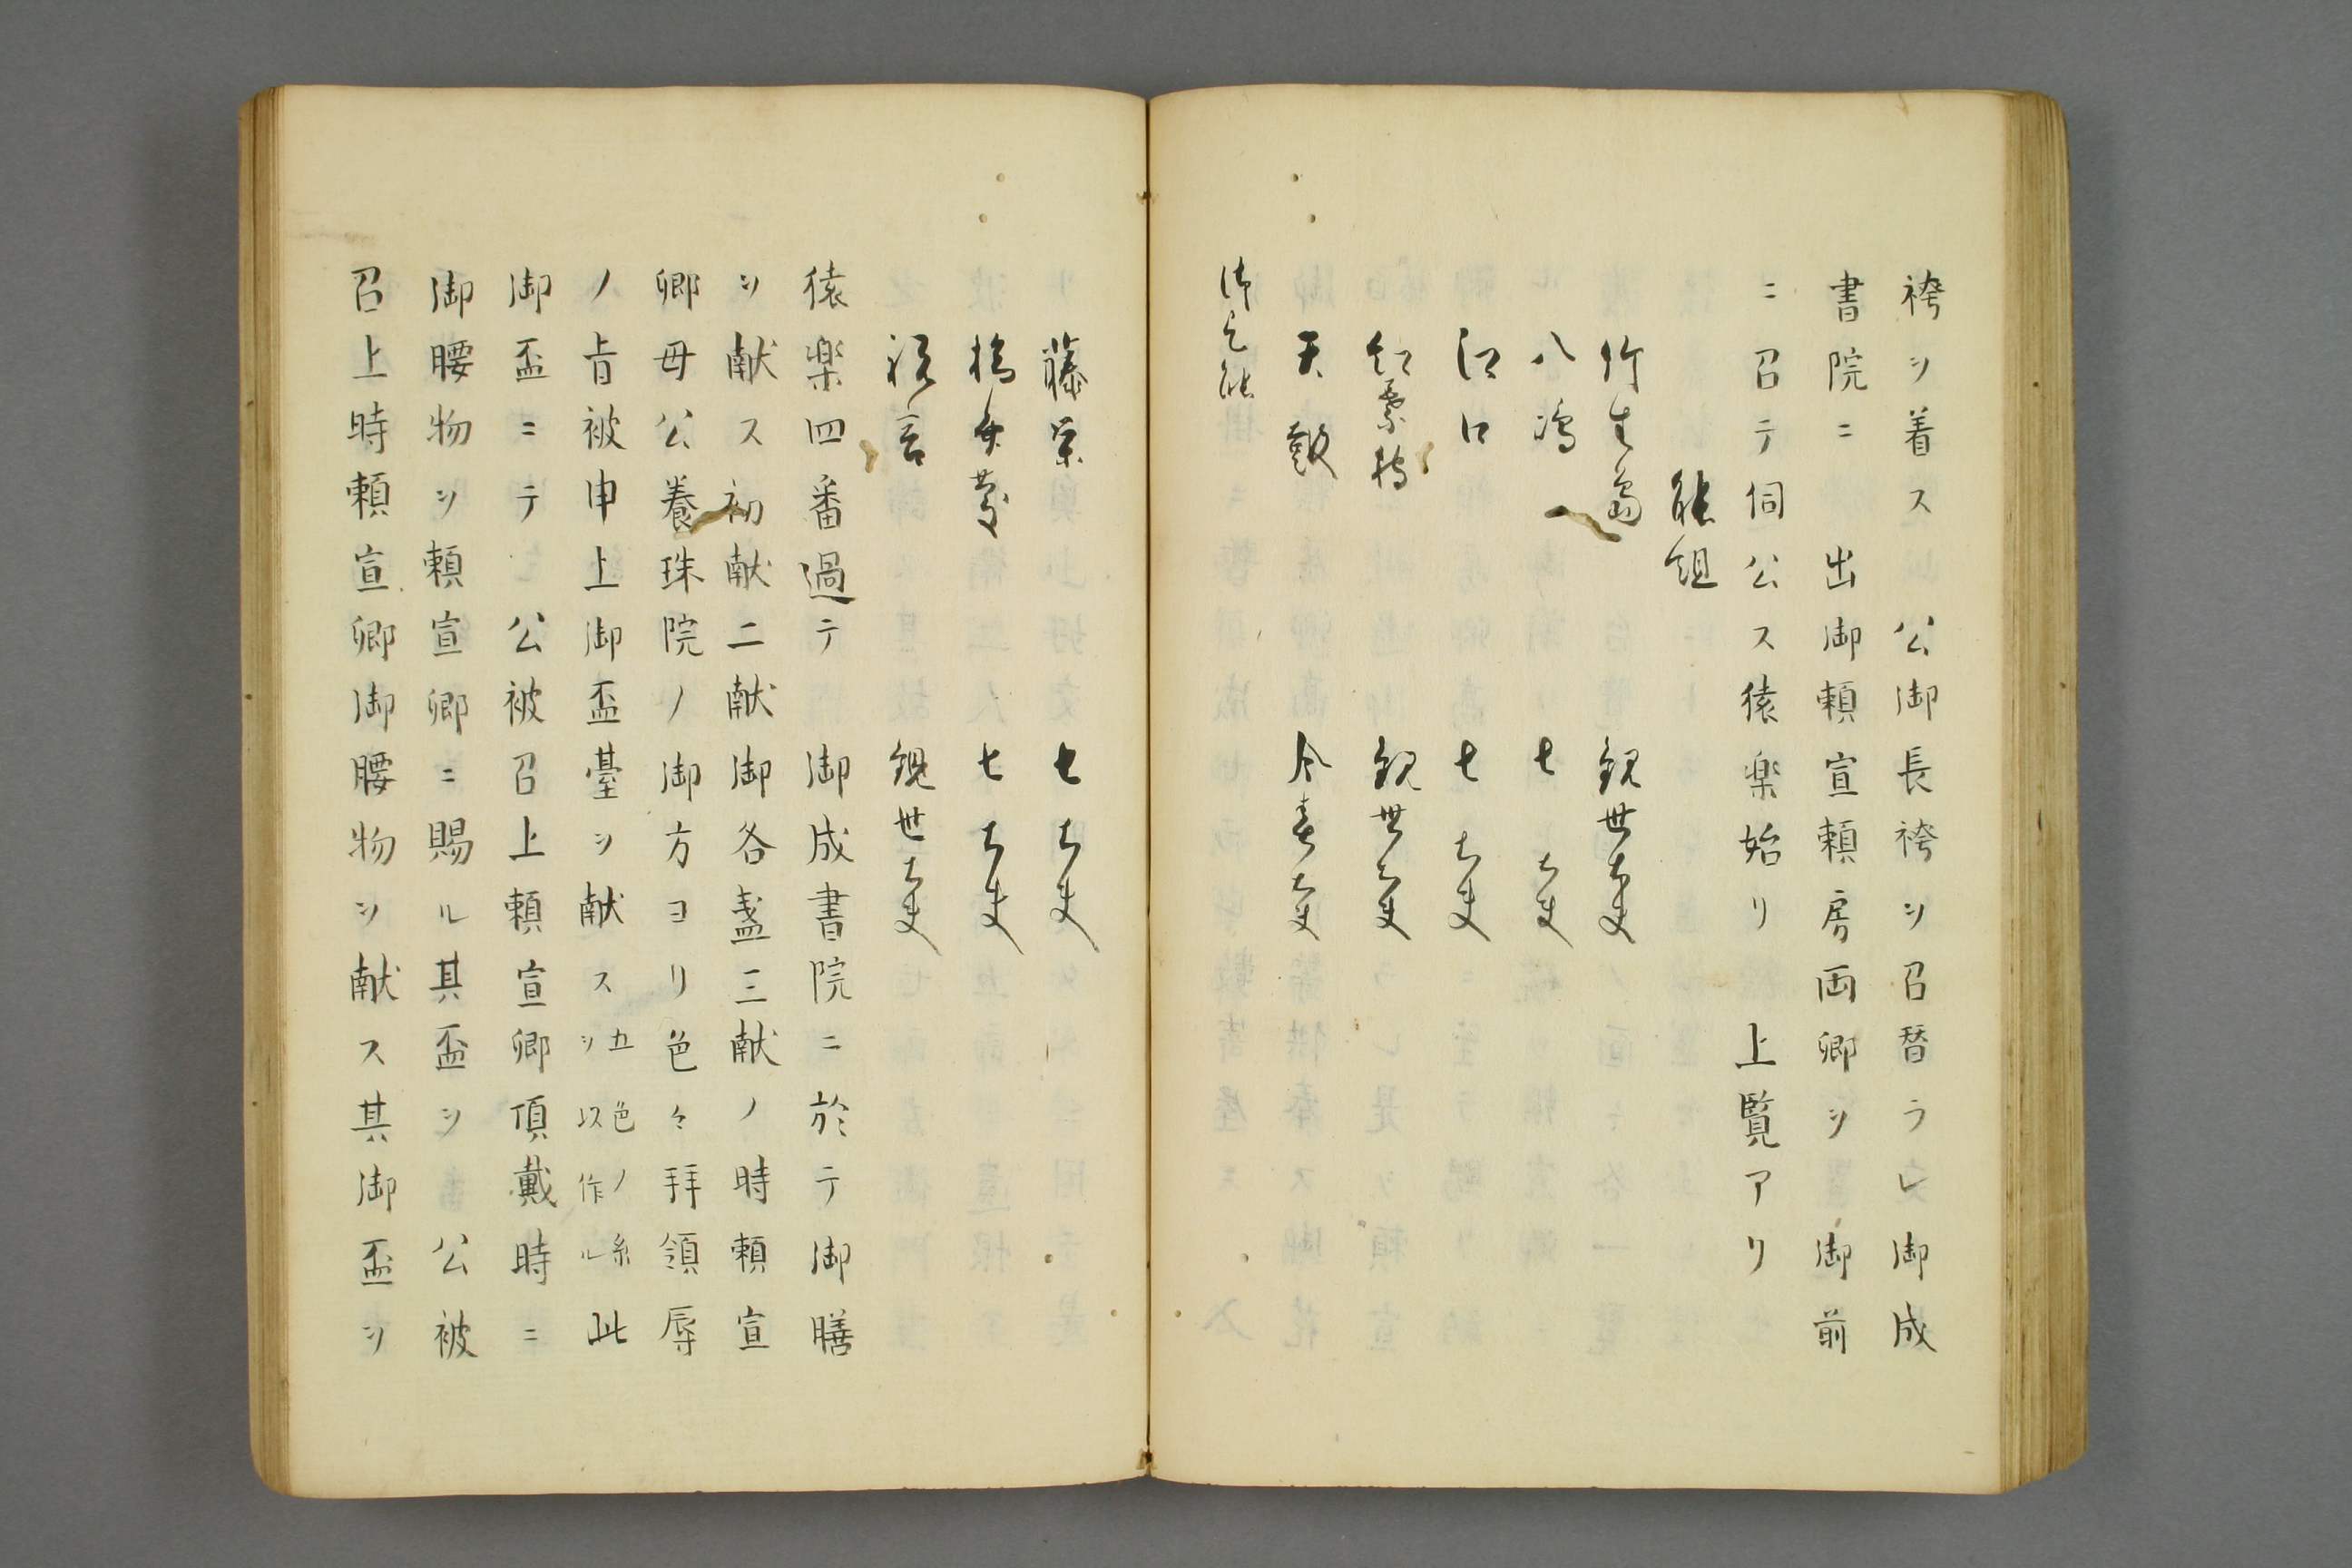 袴ヲ着ス 公御長袴ヲ召替ラレ御成
書院ニ 出御頼宣頼房両卿ヲ 御前
ニ召テ伺公ス猿楽始リ 上覧アリ
能組
竹生嶋 観世大夫
八嶋 七大夫
江口 七大夫
紅葉狩 観世大夫
天鼓 今春大夫
御乞能
藤栄 七大夫
橋弁慶 七大夫
祝言 観世大夫
猿楽四番過テ 御成書院ニ於テ御膳
ヲ献ス初献二献御各盞三献ノ時頼宣
卿母公養珠院ノ御方ヨリ色々拝領辱
ノ旨被申上御盃臺ヲ献ス五色ノ糸ヲ以作ル此
御盃ニテ 公被召上頼宣卿頂戴時ニ
御腰物ヲ頼宣卿ニ賜ル其盃ヲ 公被
召上時頼宣卿御腰物ヲ献ス其御盃ヲ